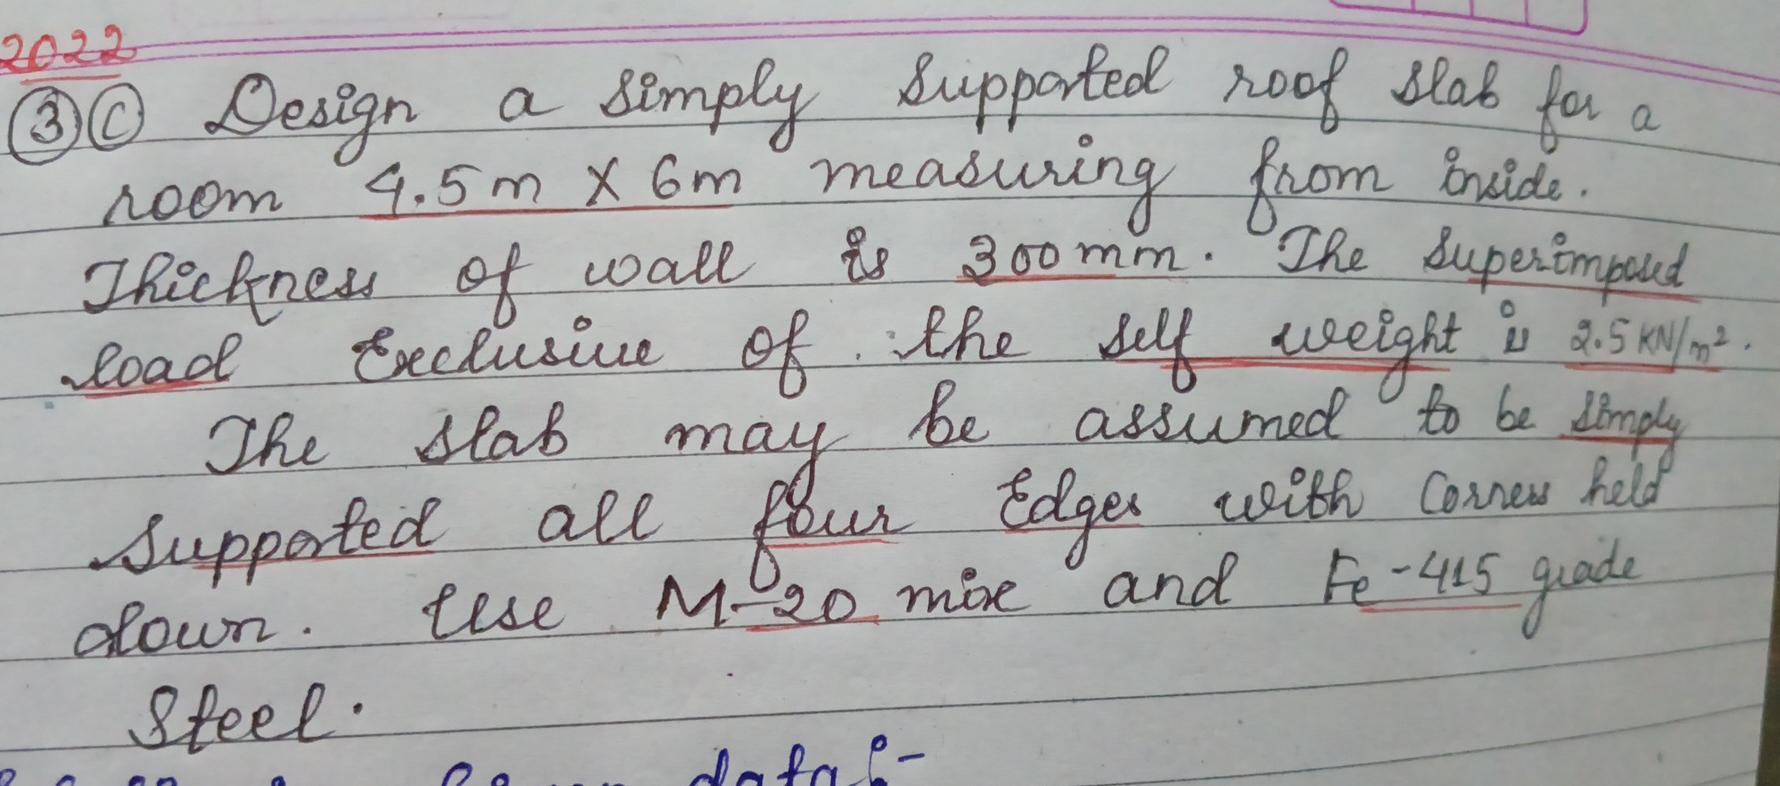 2022
③ⓒ Design a simply supported roof slab for a
room 4.5m X 6m measuring from inside.
Thickness of wall is 300mm. The superimposed
load Exclusive of the self weight is 2.5 KN/m².
The slab may be assumed to be simply
supported all four Edges with Corners held
down. Use M-20 mix and Fe-415 grade
Steel.
data:-